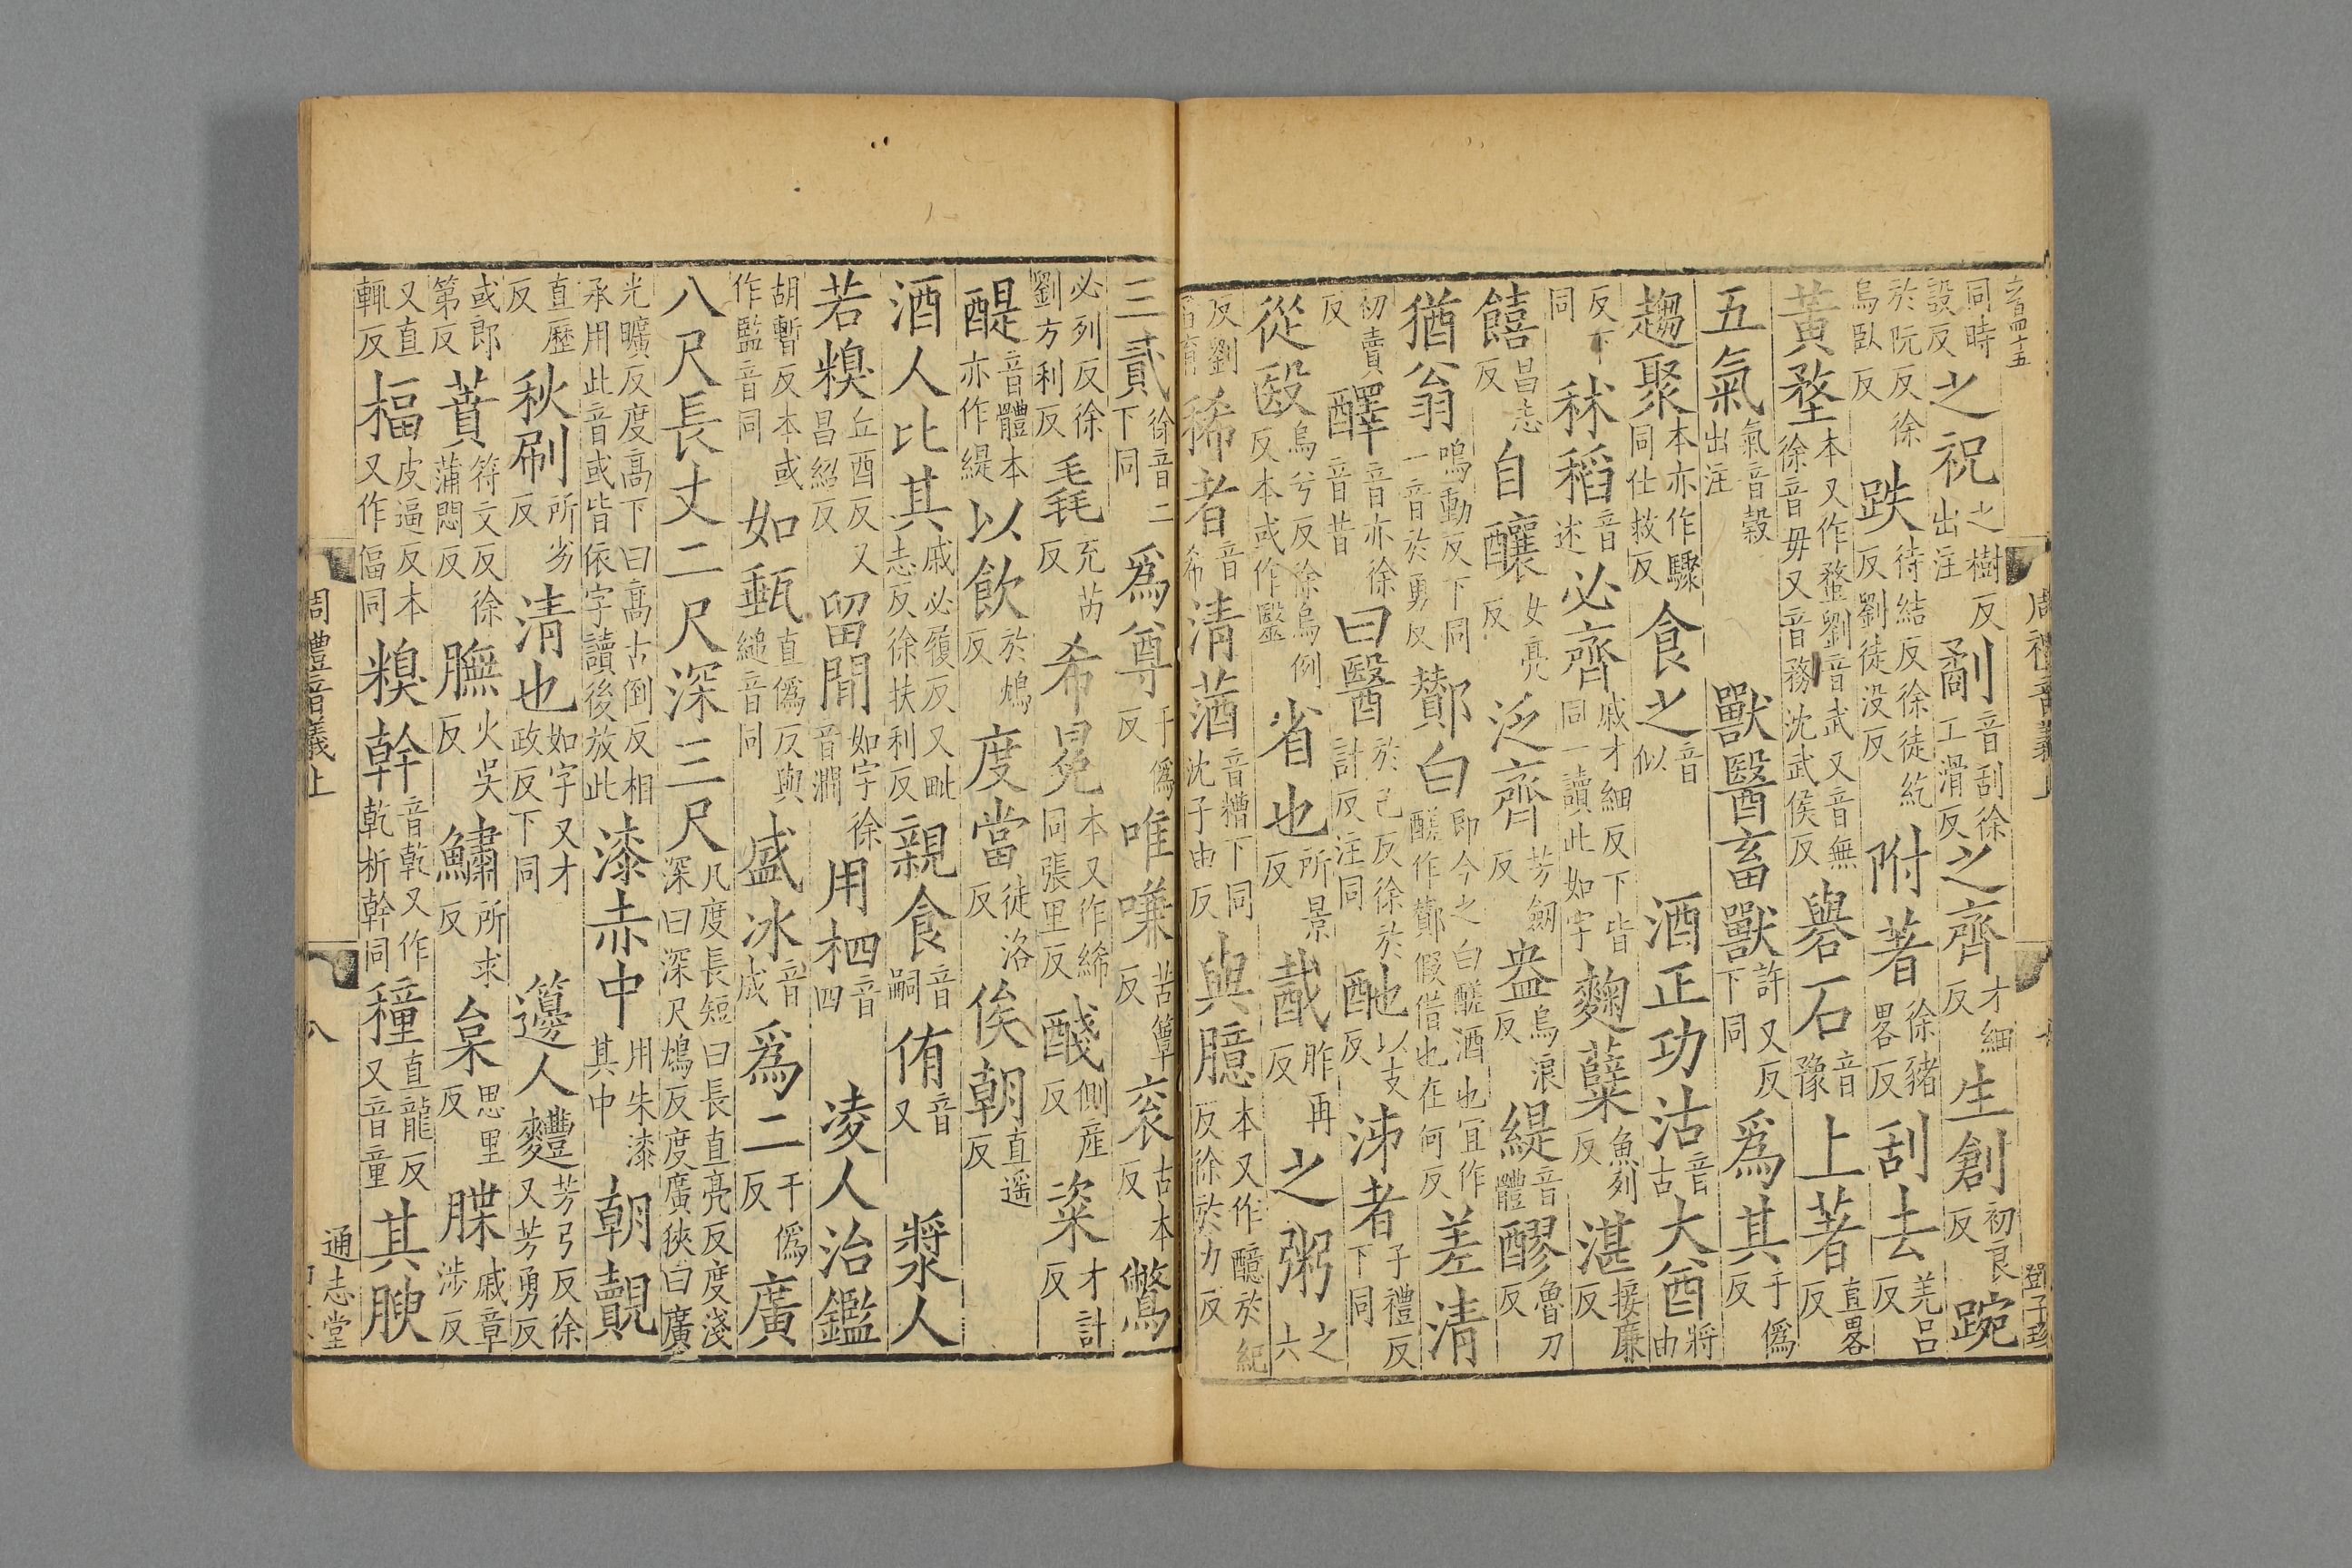 同時設反之祝之樹反出注劀音刮徐工滑反之齊才細反生創初良反踠
於阮反徐烏臥反跌待結反徐徒紇反劉徒没反附著徐豬畧反刮去羌呂反
黃堥本又作蝥劉音武又音無徐音毋又音務沈武侯反礜石音豫上著直畧反
五氣氣音穀出注獸醫畜獸許又反下同爲其于僞反
趨聚本亦作驟同仕救反食之音似酒正功沽音古大酋將由
反下同秫稻音述必齊戚才細反下皆同一讀此如字麴蘖魚列反湛接廉反
饎昌志反自釀女亮反泛齊芳劒反盎烏浪反緹音體醪魯刀反
猶翁鳴動反下同一音於勇反酇白即今之白醝酒也宜作醝作酇假借也在何反差清
初賣反醳音亦徐音昔曰醫於己反徐於計反注同酏以支反泲者子禮反下同
從殹烏兮反徐烏例反本或作醫省也所景反酨昨再反之粥之六
反劉音育稀者音希清䤖音糟下同沈子由反與臆本又作醷於紀反徐於力反
三貳徐音二下同爲尊于僞反唯嗛苦簟反衮古本反鷩
必列反徐劉方利反毳充芮反希冕本又作絺同張里反醆側產反粢才計反
醍音體本亦作緹以飲於鴆反度當徒洛反俟朝直遥反
酒人比其戚必履反又毗志反徐扶利反親食音嗣侑音又漿人
若糗丘酉反又昌紹反留閒如字徐音澗用柶音四凌人治鑑
胡暫反本或作監音同如甀直僞反與縋音同盛冰音成爲二于僞反廣
八尺長丈二尺深三尺凡度長短曰長直亮反度淺深曰深尺鴆反度廣狹曰廣
光曠反度高下曰高古倒反相承用此音或皆依字讀後放此漆赤中用朱漆其中朝覿
直歷反秋刷所劣反清也如字又才政反下同籩人麷芳弓反徐又芳勇反
或郎第反蕡符文反徐蒲悶反膴火吳反鱐所求反枲思里反牒戚章涉反
又直輒反楅皮逼反本又作偪同糗幹音乾又作乾析幹同穜直龍反又音童其腴
周禮音義上
八
通志堂